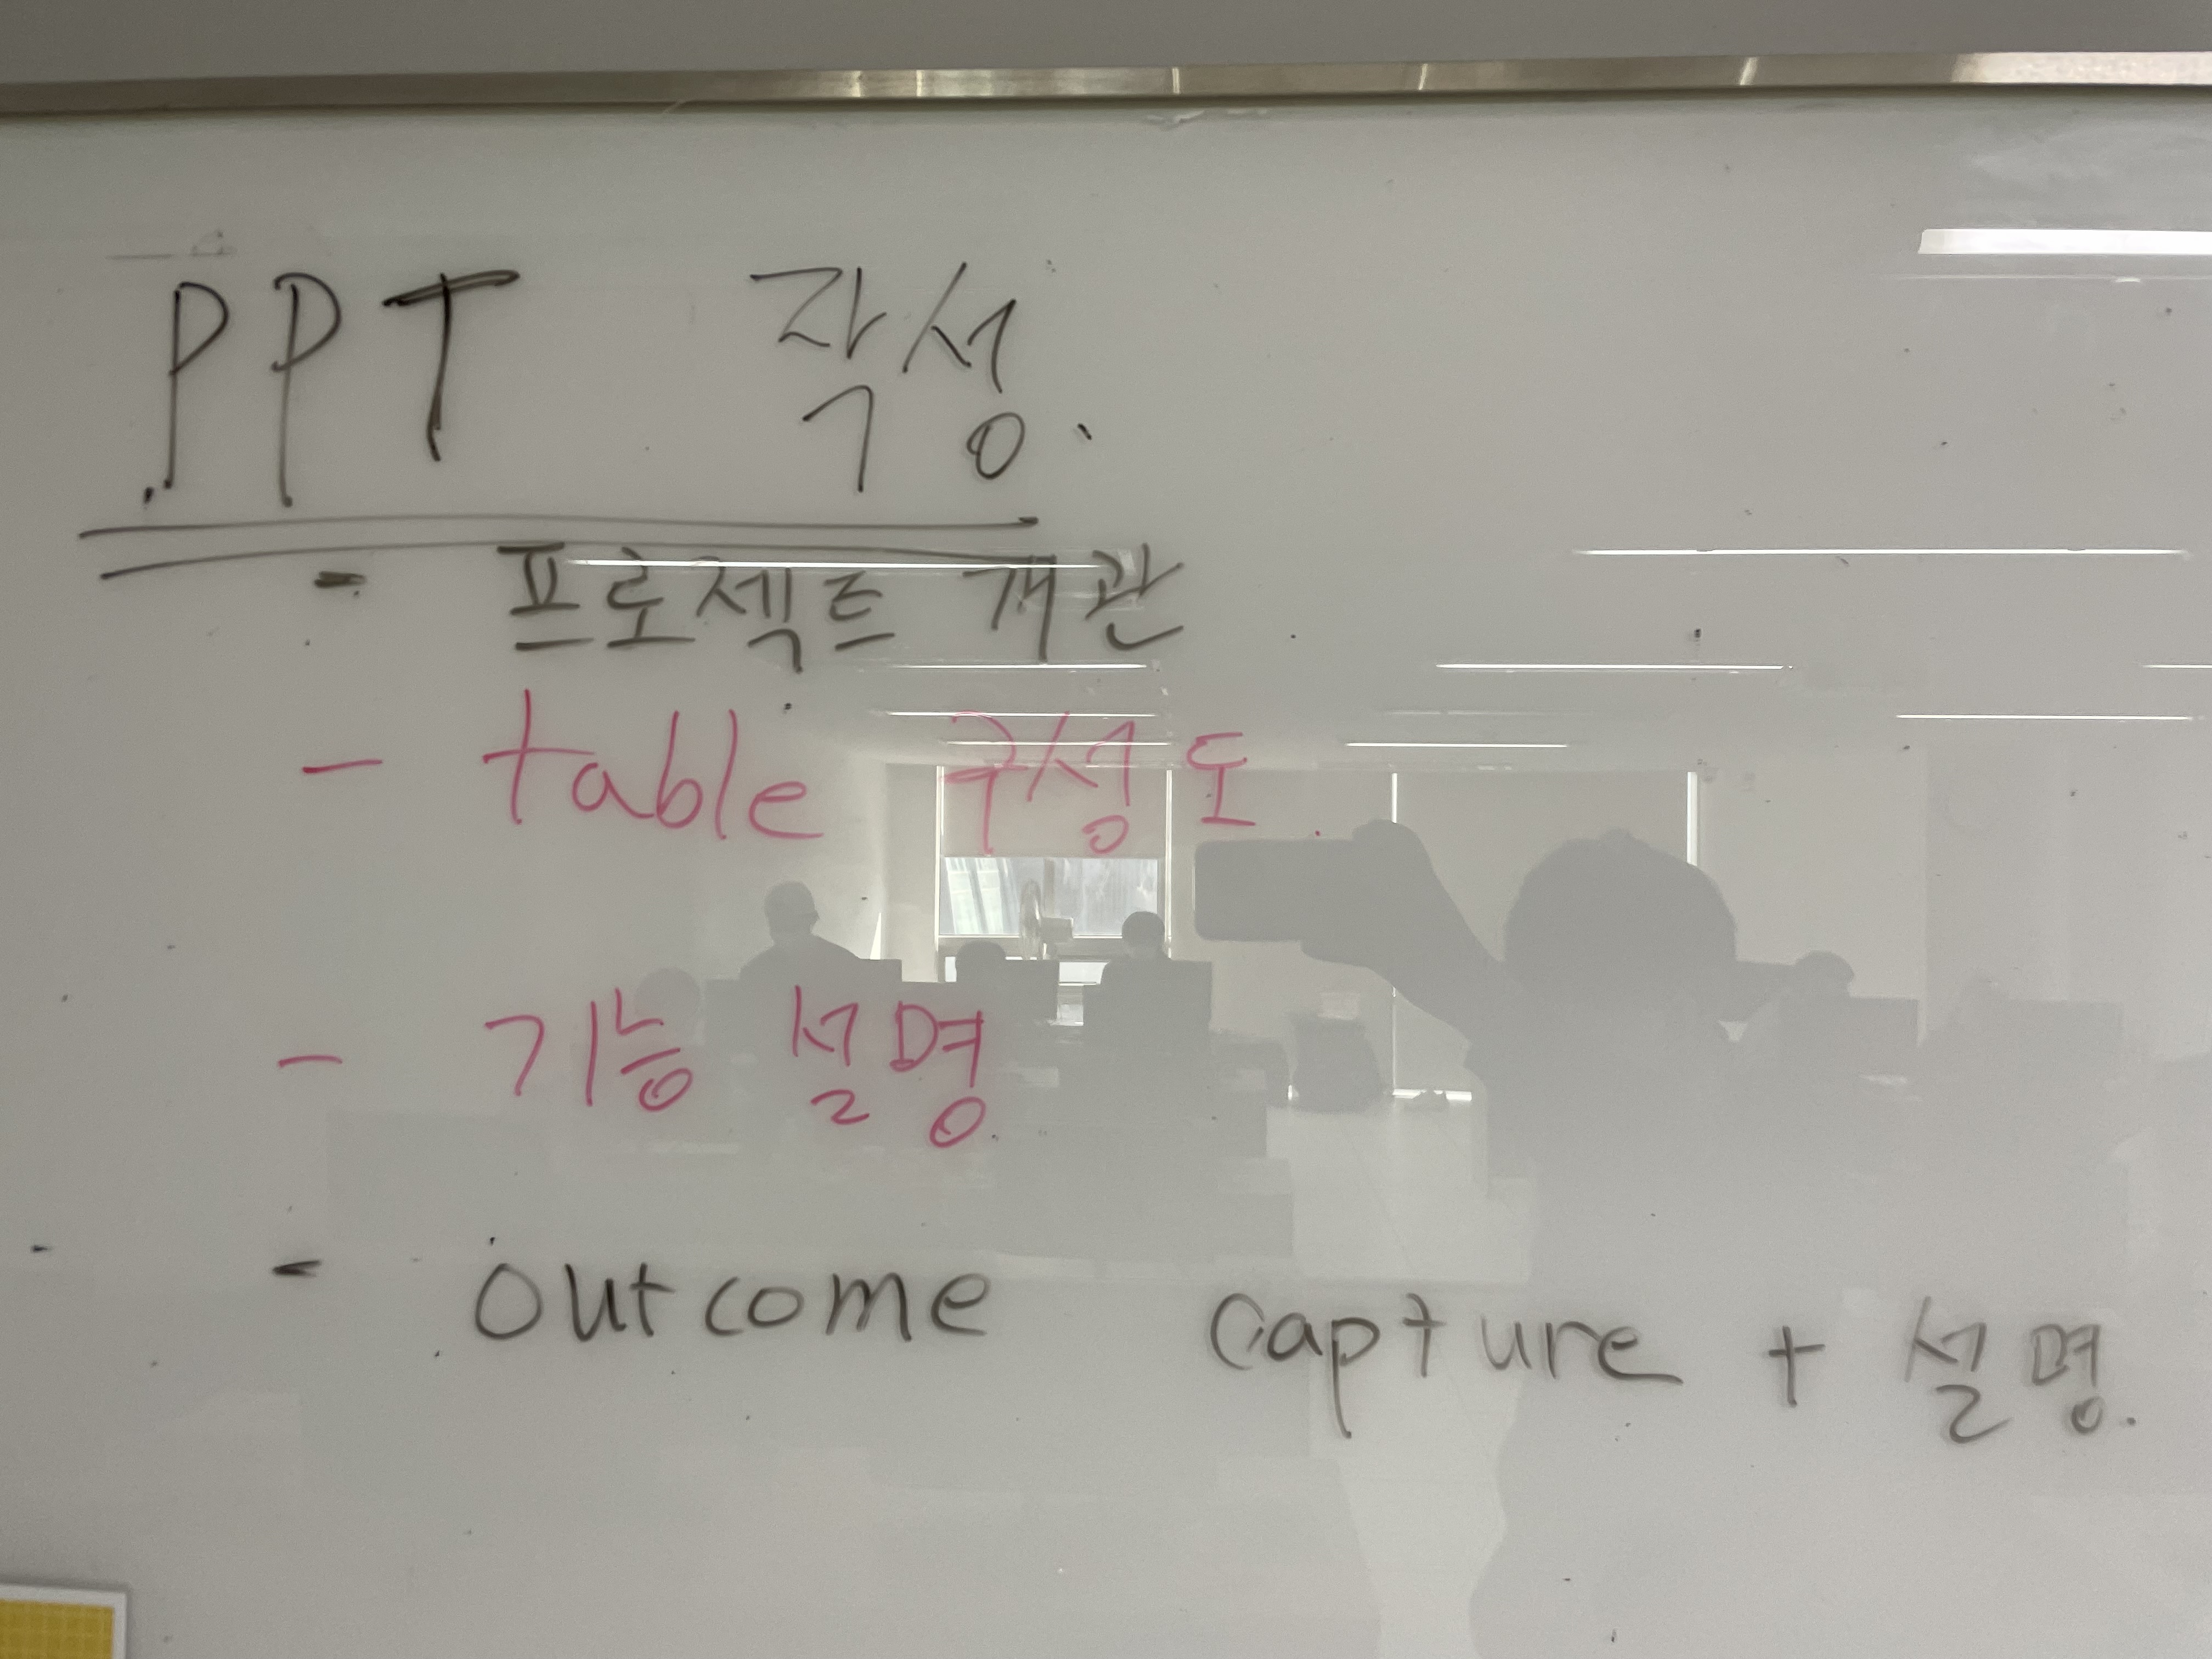 PPT 작성.
- 프로젝트 개관
- table 구성도.
- 기능 설명.
- outcome capture + 설명.